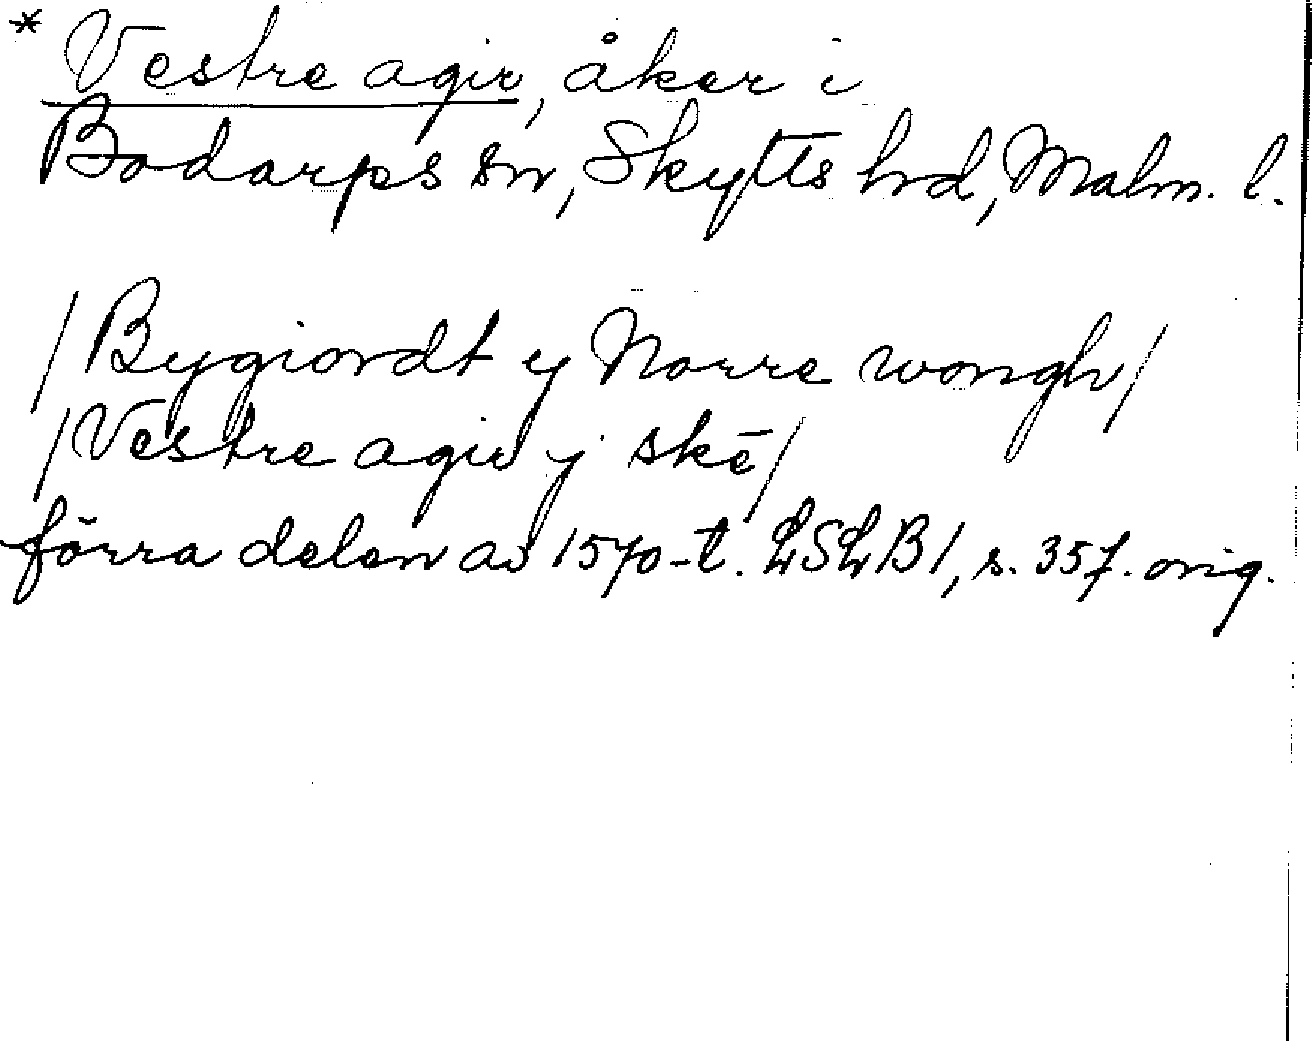 * Vestre agir, åker i
Bodarps sn, Skytts hrd, Malm. l.
/Bygiordt y Norre wongh/
/Vestre agir y skē/
förra delen av 1570-t. LSLB1, s. 357. orig.